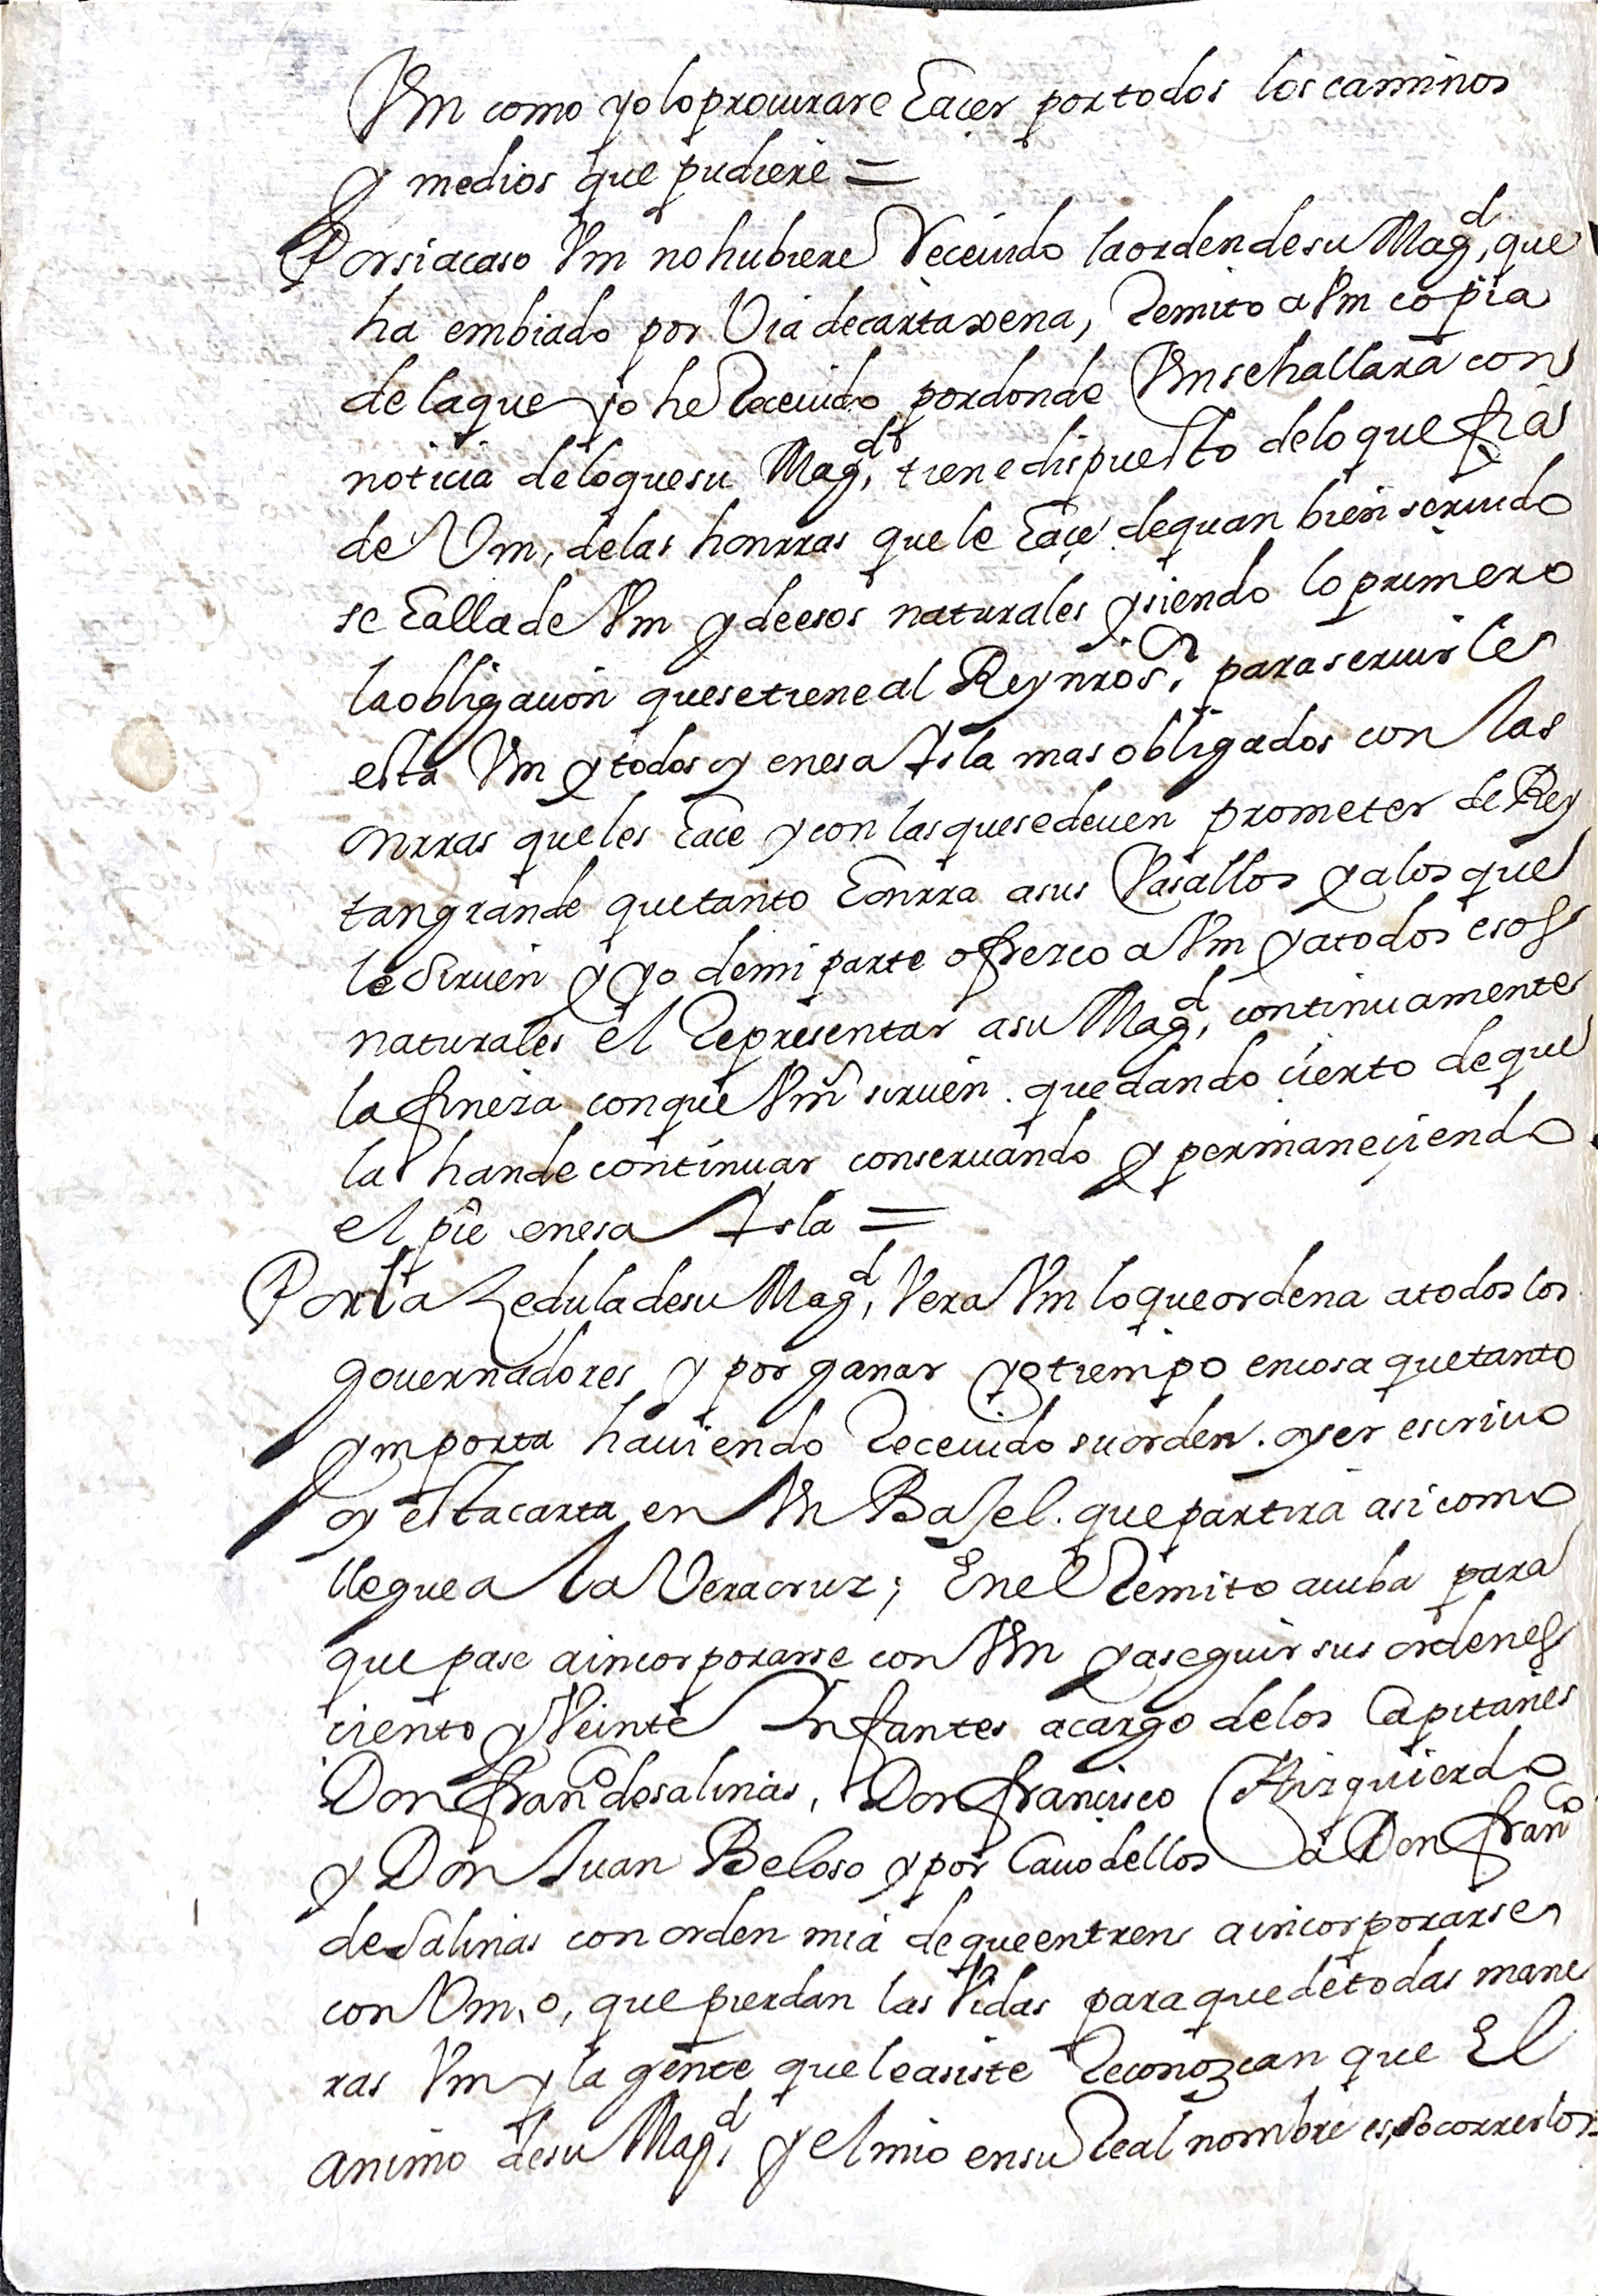 Vm como yo lo procurare hacer por todos los caminos
y medios que pudiere =
Por si acaso Vm no hubiere receuido la orden de su Magd, que
ha embiado por Via de cartaxena, remito a Vm copia
de la que yo he receuido por donde Vm se hallara con
noticia de lo que su Magd, tiene dispuesto de lo que fia
de Vm, de las honrras que le hace de quan bien seruido
se halla de Vm y de esos naturales y siendo lo primero
la obligacion que se tiene al Rey nro Sr, para seruirle
esta Vm y todos oy en esa Isla mas obligados con las
onrras que les hace y con las que se deuen prometer de Rey
tan grande que tanto honrra a sus Vasallos y a los que
le siruen y yo de mi parte ofrezco a Vm y a todos esos
naturales el representar a su Magd, continuamente
la fineza con que Vm siruen. quedando cierto de que
la han de continuar conseruando y permaneçiendo
el pie en esa Isla =
Por la Zedula de su Magd, Vera Vm lo que ordena a todos los
gouernadores y por ganar yo tiempo en cosa que tanto
ymporta hauiendo receuido su orden. ayer escriuo
oy esta carta en Vn Baxel. que partira asi como
llegue a la Veracruz; En el remito a cuba para
que pase a incorporarse con Vm y a seguir sus ordenes
ciento y Veinte Infantes a cargo de los Capitanes
Don Franco de salinas, Don Francisco Yzquierdo
y Don Juan Beloso y por Cauo dellos a Don Franco
de Salinas con orden mia de que entren a incorporarse
con Vm, o, que pierdan las Vidas para que de todas mane
ras Vm y la gente que le asiste reconozcan que El
animo de su Magd, y el mio en su real nombre es, socorrerlos